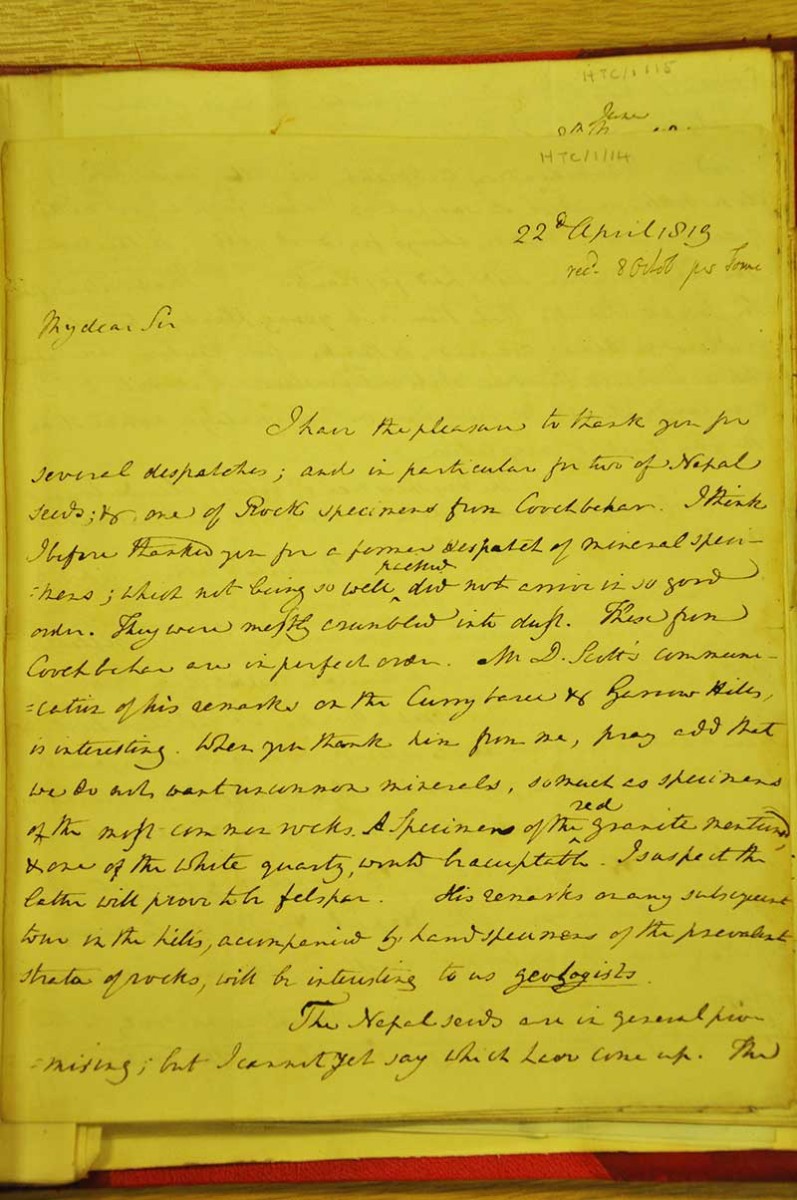 HTC/1/15
June
HTC/1/14
22d April 1819
recd. 8 Octob per Tome
My dear Sir
I have the pleasure to thank you for
several despatches; and in particular for two of Nepal
seeds; & one of Rock specimens from Coochbehar. I think
I before thanked you for a former despatch of mineral speci-
=mens; which not being so well packed did not arrive in so good
order. They were mostly crumbled into dust. These from
Coochbehar are in perfect order. Mr D. Scott's communi-
=cation of his remarks on the Currybaree & Garrow Hills,
is interesting. When you thank him from me, pray add that
we do not want uncommon minerals, so much as specimens
of the most common rocks. A Specimen of the red granite mentioned,
& one of the white quartz, would be acceptable. I suspect the
latter will prove to be felspar. His remarks on any subsequent
tour in the hills, accompanied by hand specimens of the prevalent
strata of rocks, will be interesting to us geologists.
The Nepal seeds are in general pro-
=mising; but I cannot yet say which have come up. The